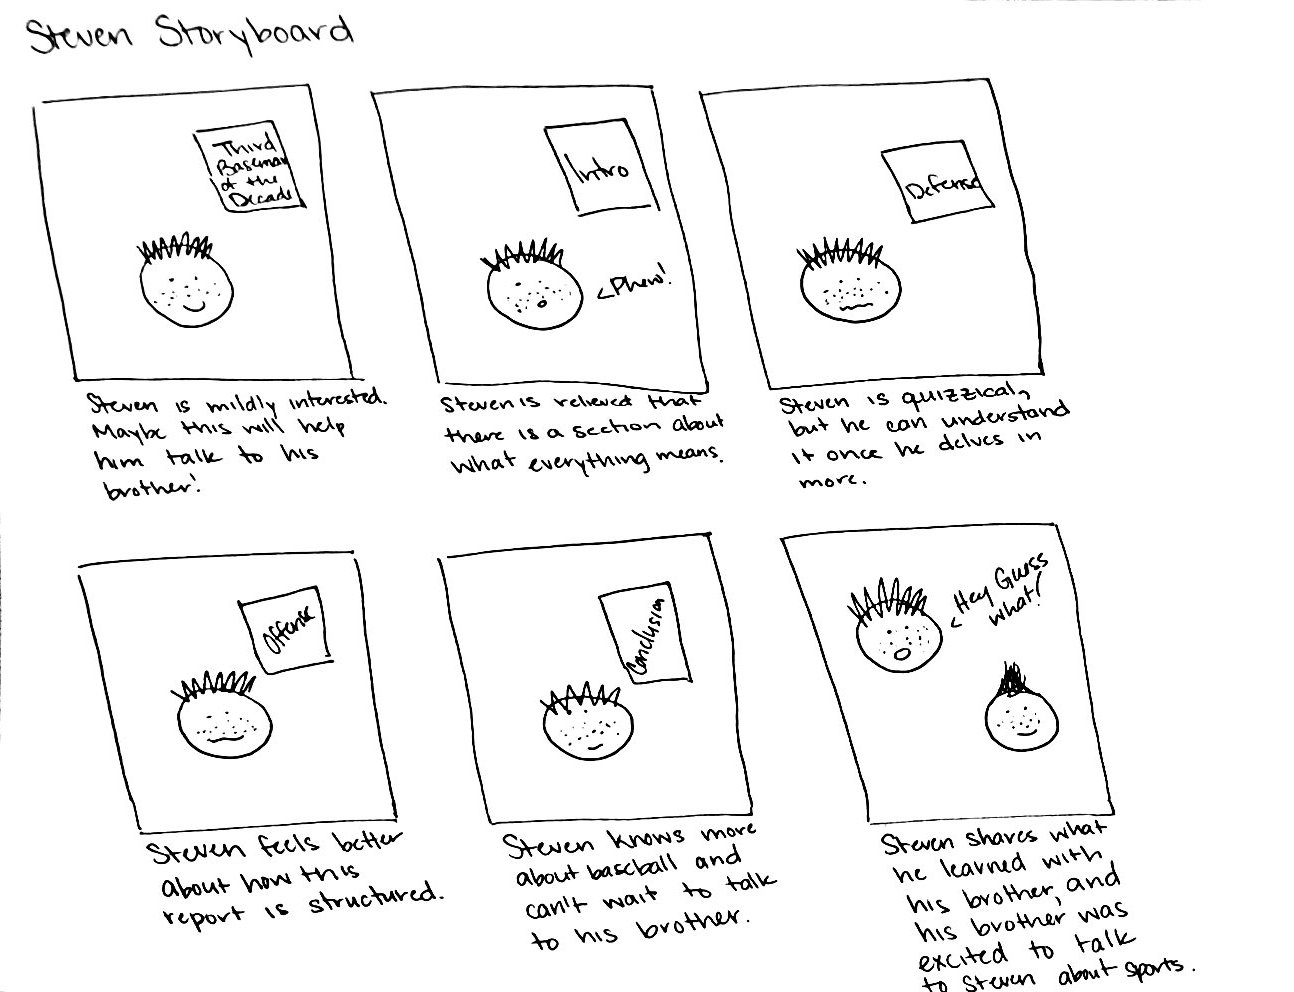 Steven Storyboard
Third
Baseman
of the
Decade
Intro
<Phew!
Defense
Steven is mildly interested.
Maybe this will help
him talk to his
brother!
Steven is relieved that
there is a section about
what everything means.
Steven is quizzical,
but he can understand
it once he delves in
more.
Offense
Conclusion
<Hey Guess
what!
Steven feels better
about how this
report is structured.
Steven knows more
about baseball and
can't wait to talk
to his brother.
Steven shares what
he learned with
his brother, and
his brother was
excited to talk
to Steven about sports.